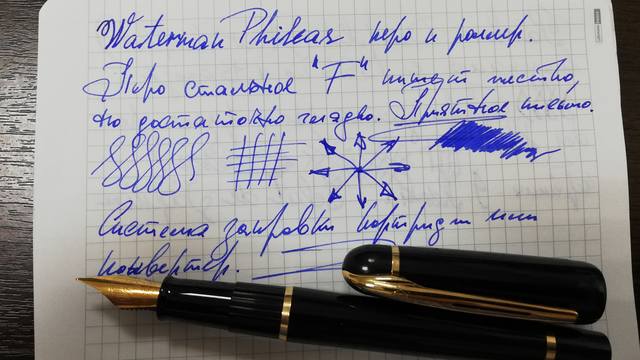 Waterman Phileas перо и роллер.
Перо стальное "F" пишет жестко,
но достаточно гладко. Приятное письмо.
Система заправки картридж или
конвертер.